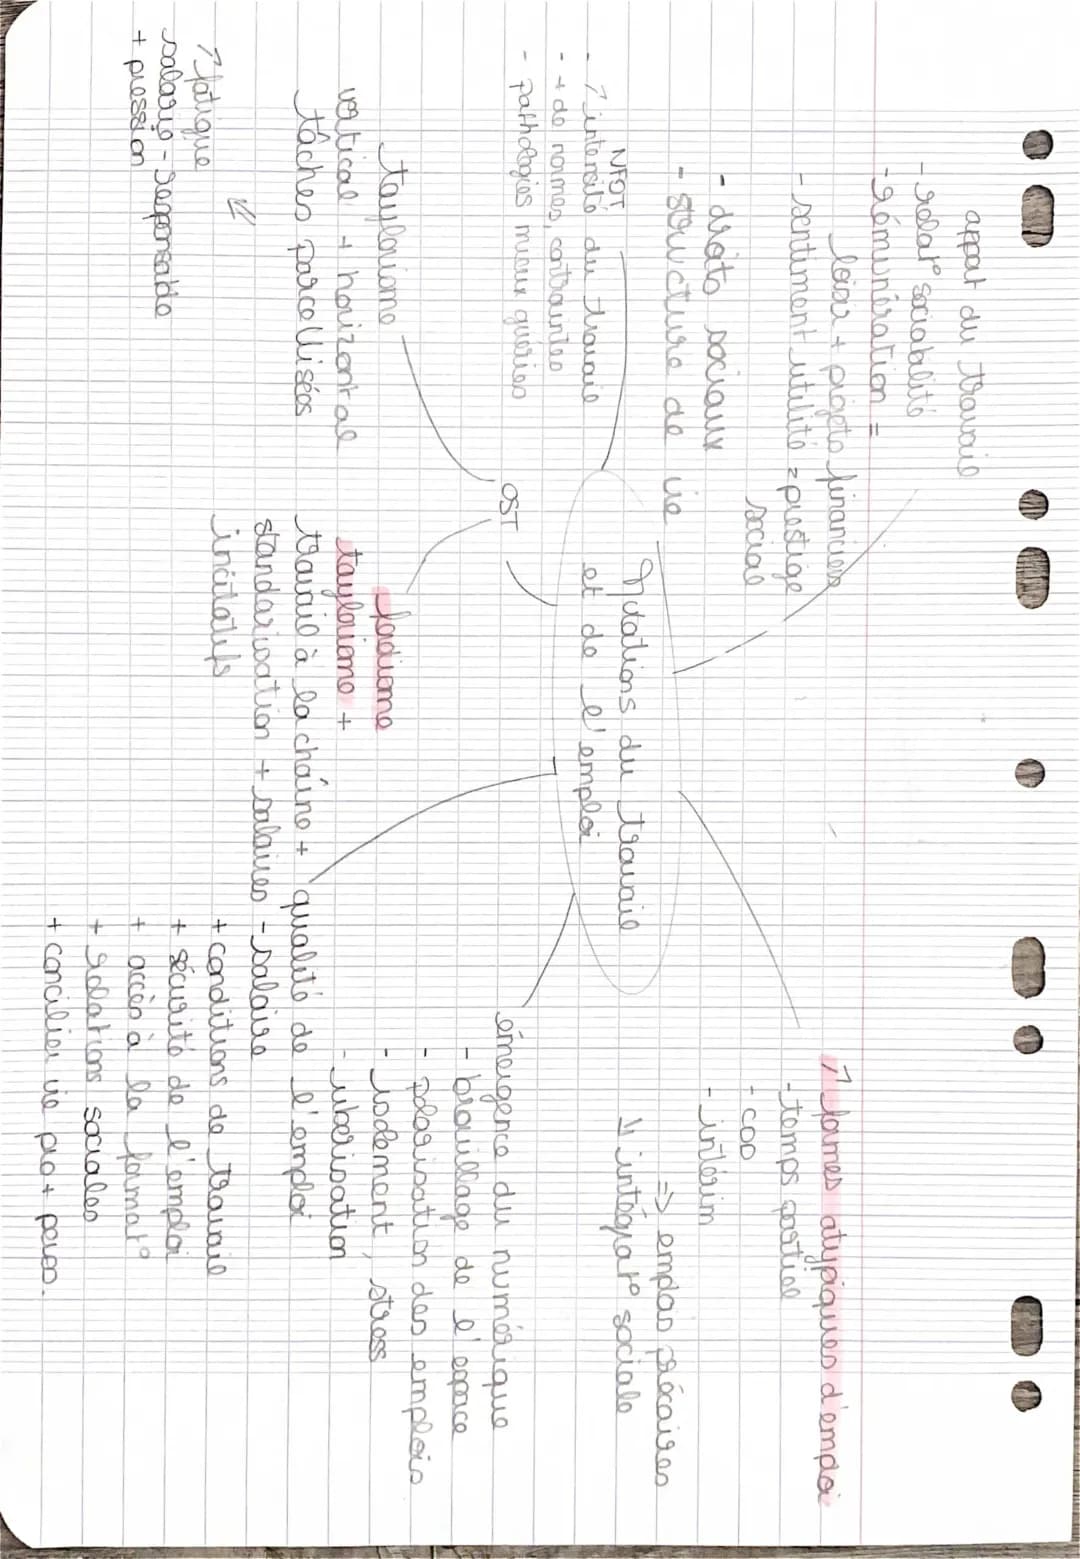 apport du travail
- relat° sociabilité
- rémunération =
loisir + projets financiers
- sentiment utilité = prestige
social
- droits sociaux
- structure de vie
NFOT
- ↗ intensité du travail
- + de normes, contraintes
- pathologies mieux guéries
Mutations du travail
et de l'emploi
↗ formes atypiques d'emploi
- temps partiel
- CDD
- intérim
=> emplois précaires
↘ intégrat° sociale
OST
taylorisme
vertical + horizontal
tâches parcellisées
↗ fatigue
salarié - responsable
+ pression
fordisme
taylorisme +
travail à la chaîne +
standarisation + salaires
incitatifs
émergence du numérique
- brouillage de l'espace
- polarisation des emplois
- isolement, stress
- uberisation
qualité de l'emploi
- salaire
+ conditions de travail
+ sécurité de l'emploi
+ accès à la format°
+ relations sociales
+ concilier vie pro + perso.